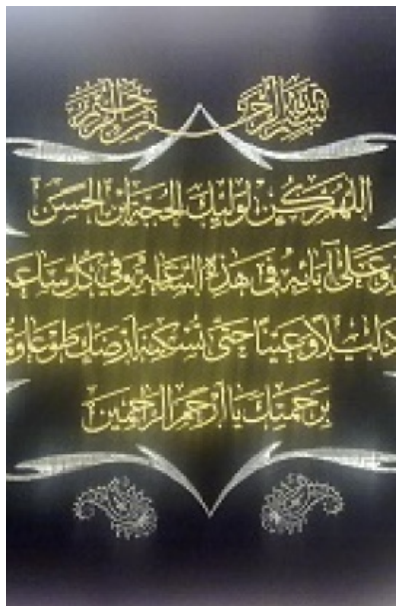 بسم الله الرحمن الرحیم
اللهم کن لولیک الحجة ابن الحسن
وعلی آبائه فی هذه الساعة وفی کل ساعة
دلیلا وعینا حتی تسکنه ارضک طوعا و
برحمتک یا ارحم الراحمین